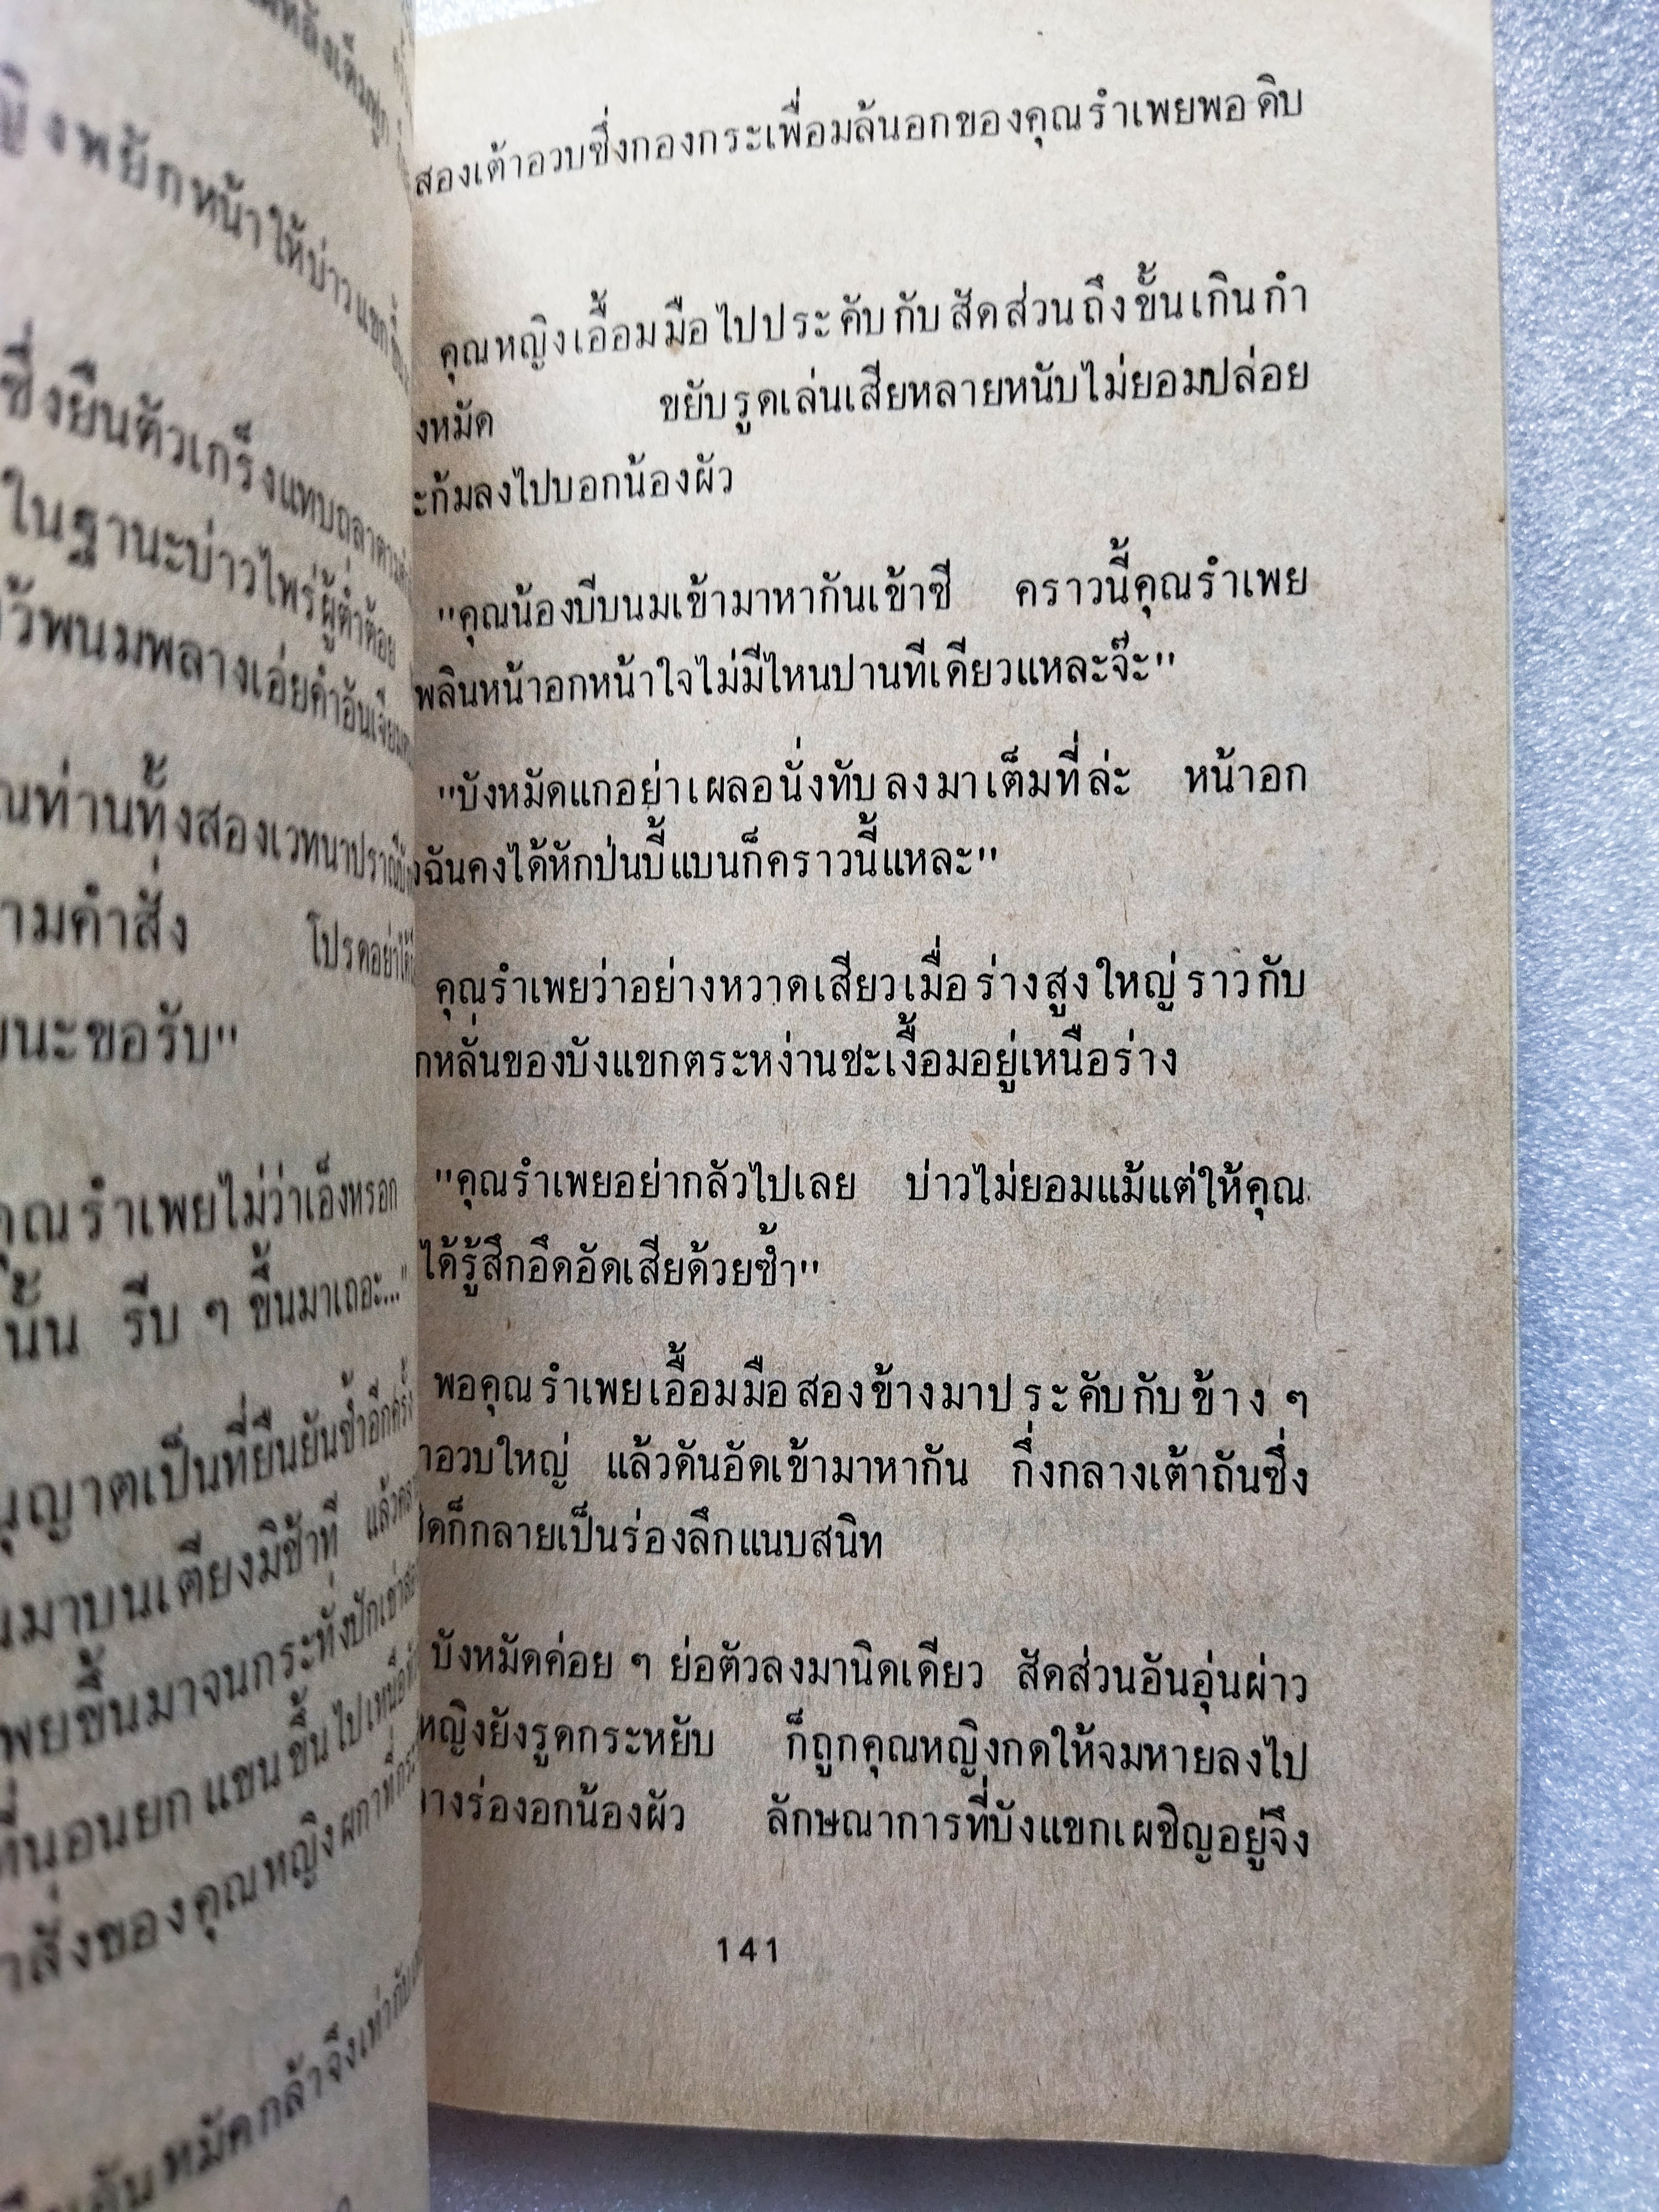 สองเต้าอวบซึ่งกองกระเพื่อมล้นอกของคุณรำเพยพอดิบ
คุณหญิงเอื้อมมือไปประคับกับสัดส่วนถึงขั้นเกินกำ
งหมัด ขยับรูดเล่นเสียหลายหนับไม่ยอมปล่อย
ะก้มลงไปบอกน้องผัว
"คุณน้องบีบนมเข้ามาหากันเข้าซี คราวนี้คุณรำเพย
พลินหน้าอกหน้าใจไม่มีไหนปานทีเดียวแหละจ๊ะ"
"บังหมัดแกอย่าเผลอนั่งทับลงมาเต็มที่ล่ะ หน้าอก
งฉันคงได้หักป่นบี้แบนก็คราวนี้แหละ"
คุณรำเพยว่าอย่างหวาดเสียวเมื่อร่างสูงใหญ่ราวกับ
กหลั่นของบังแขกตระหง่านชะเงื้อมอยู่เหนือร่าง
"คุณรำเพยอย่ากลัวไปเลย บ่าวไม่ยอมแม้แต่ให้คุณ
ได้รู้สึกอึดอัดเสียด้วยซ้ำ"
พอคุณรำเพยเอื้อมมือสองข้างมาประคับกับข้าง ๆ
าอวบใหญ่ แล้วดันอัดเข้ามาหากัน กึ่งกลางเต้าถันซึ่ง
ิดก็กลายเป็นร่องลึกแนบสนิท
บังหมัดค่อย ๆ ย่อตัวลงมานิดเดียว สัดส่วนอันอุ่นผ่าว
หญิงยังรูดกระหยับ ก็ถูกคุณหญิงกดให้จมหายลงไป
างร่องอกน้องผัว ลักษณาการที่บังแขกเผชิญอยู่จึง
141
ญิงพยักหน้าให้บ่าวแขก
ซึ่งยืนตัวเกร็งแทบถลา
ในฐานะบ่าวไพร่ผู้ต่ำต้อย
ัวพนมพลางเอ่ยคำอันเจียม
ณท่านทั้งสองเวทนาปรานี
ามคำสั่ง โปรดอย่าได้
ยนะขอรับ"
คุณรำเพยไม่ว่าเอ็งหรอก
นั้น รีบ ๆ ขึ้นมาเถอะ..."
นุญาตเป็นที่ยืนยันซ้ำอีกครั้ง
นมาบนเตียงมิช้าที แล้ว
เพยขึ้นมาจนกระทั่งปักเข่า
ที่นอนยกแขนขึ้นไปเหนือ
ำสั่งของคุณหญิงผกาที่
หมัดกล้าจึงเท่ากับ